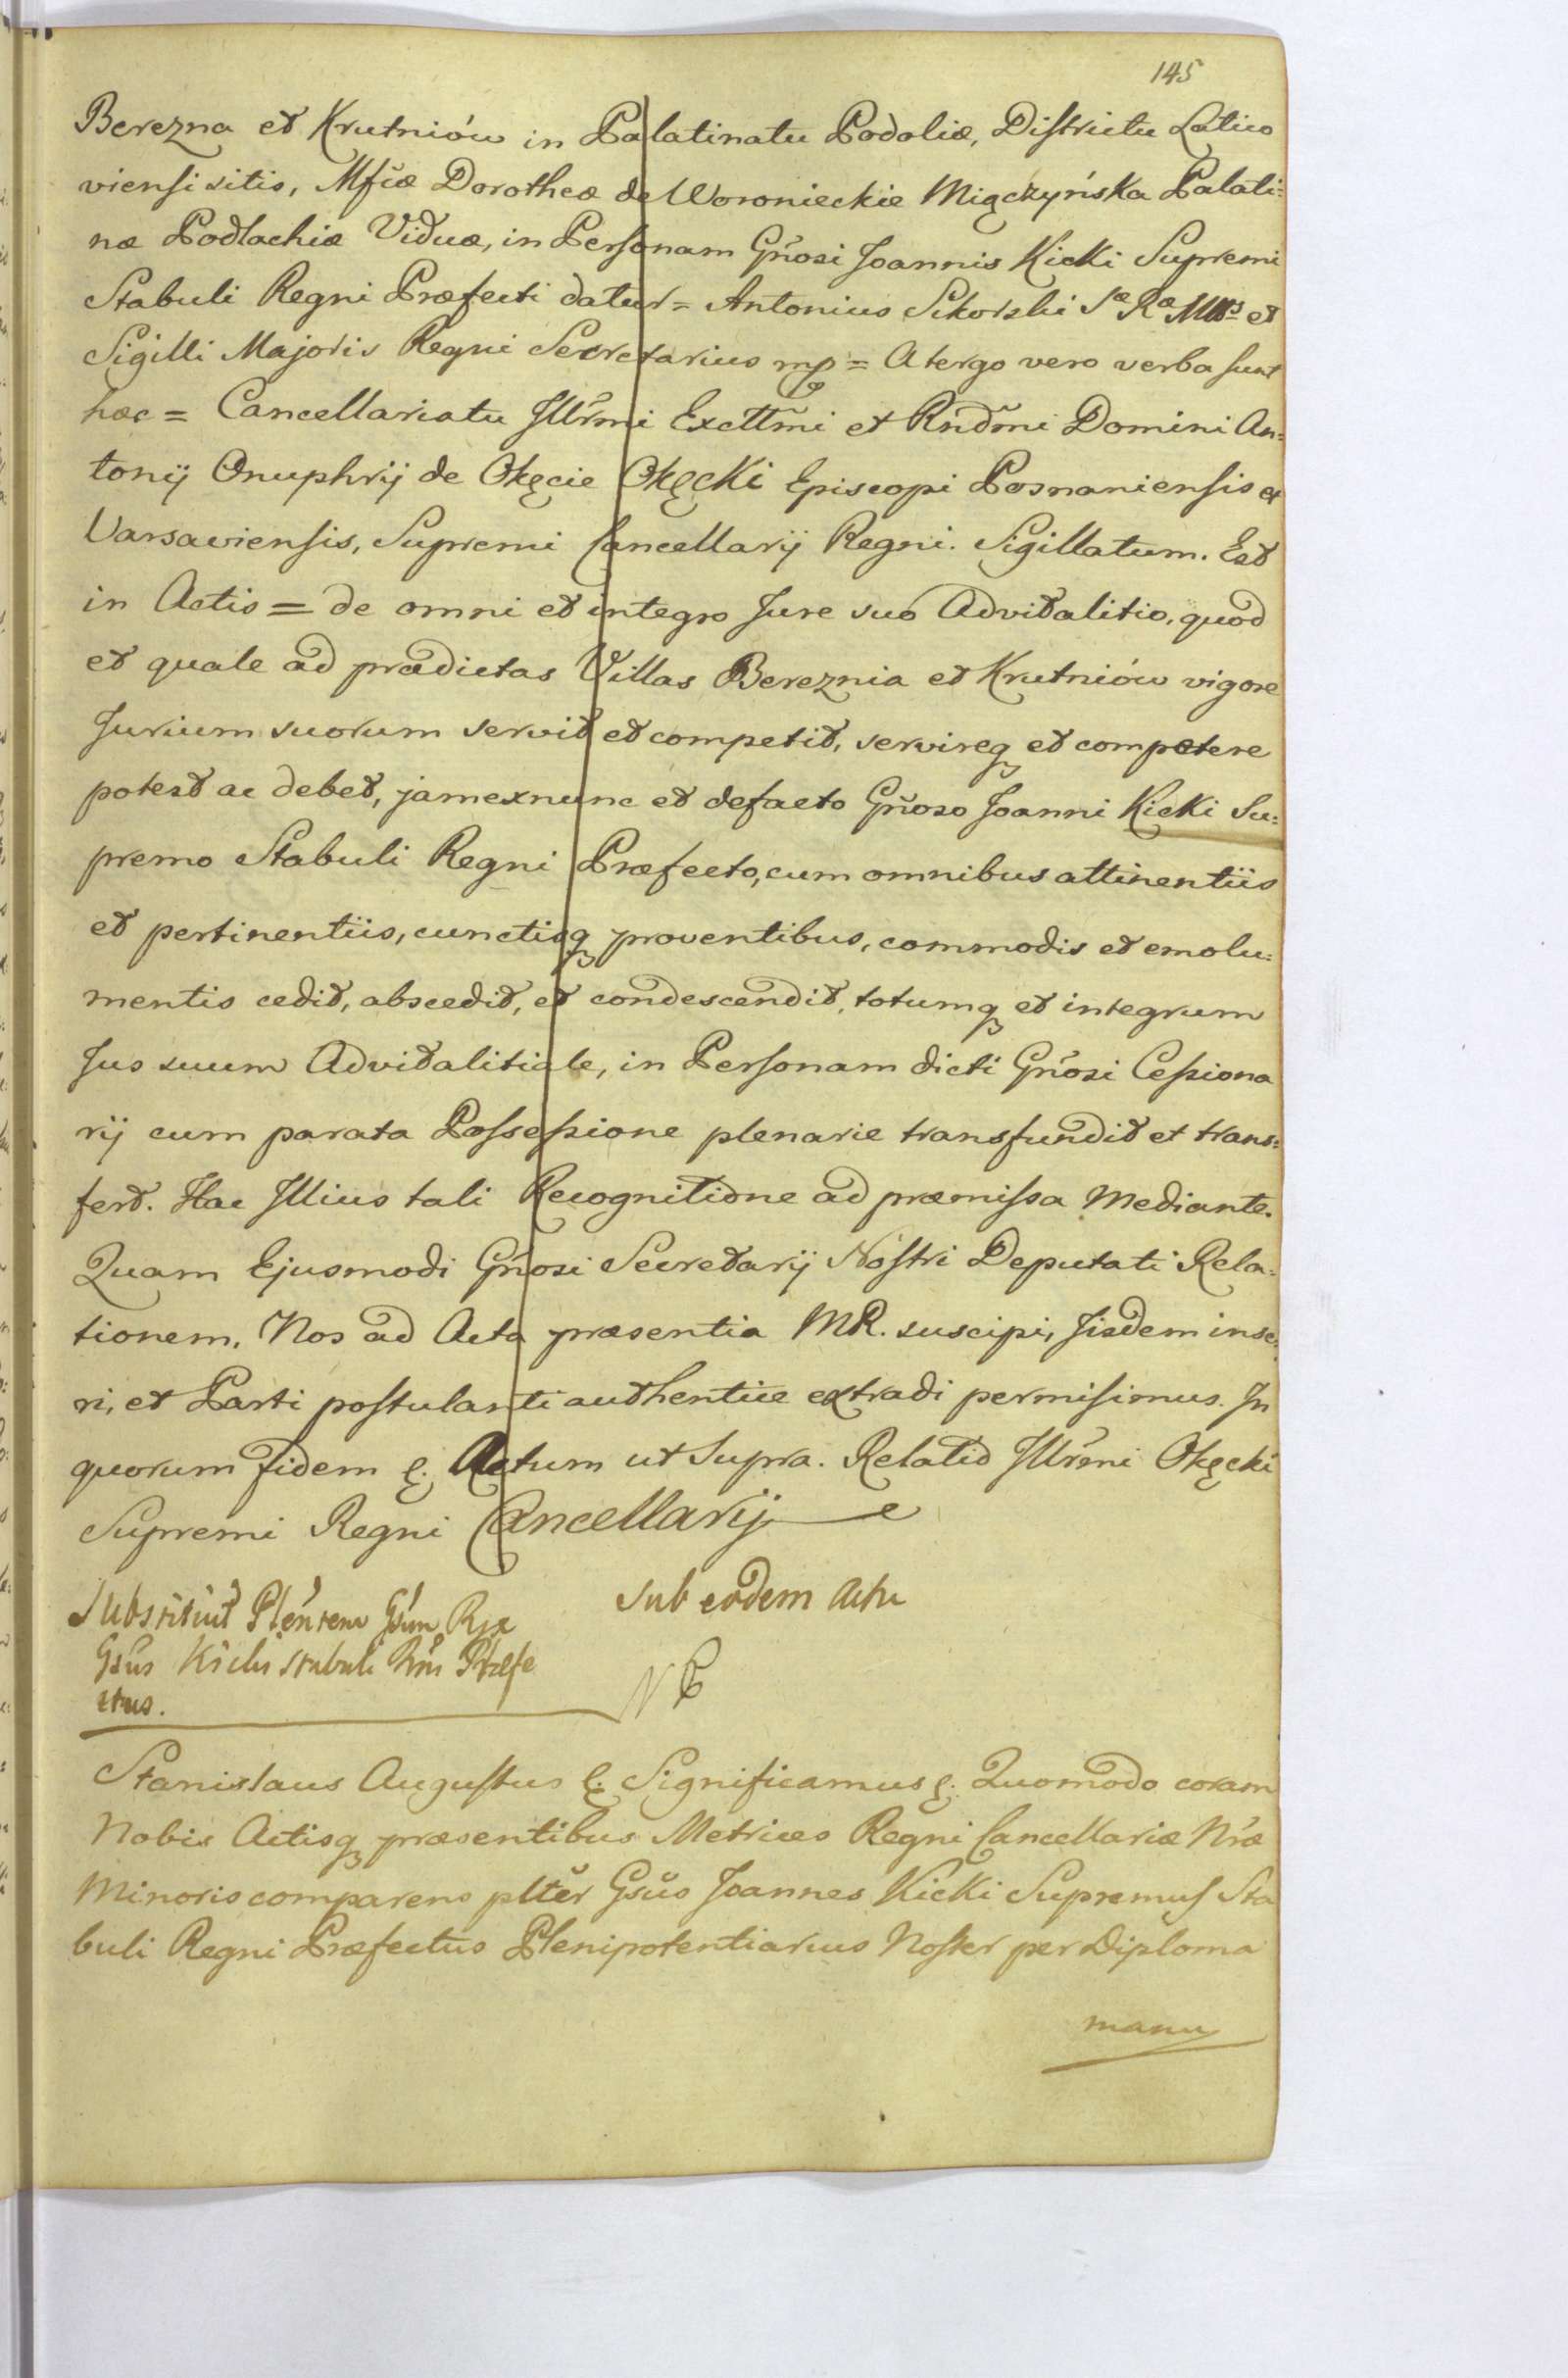 145
Berezna et Krutniów in Palatinatu Podoliæ, Districtu Latico
viensi sitis, Mfcæ Dorotheæ de Woronieckie Miączyńska Palati=
næ Podlachiæ Viduæ, in Personam Gñosi Joannis Kicki Supremi
Stabuli Regni Præfecti datur = Antonius Sikorski Sæ Ræ Mttis et
Sigilli Majoris Regni Secretarius mp = A tergo vero verba sunt
hæc = Cancellariatu Illrmi Excttmi et Rndmi Domini An=
tonij Onuphrij de Okęcie Okęcki Episcopi Posnaniensis et
Varsaviensis, Supremi Cancellarij Regni. Sigillatum. Est
in Actis = de omni et integro Jure suo Advitalitio, quod
et quale ad prædictas Villas Bereznia et Krutniów vigore
Jurium suorum servit et competit, servireq et competere
potest ac debet, jam ex nunc et de facto Gñoso Joanni Kicki Su=
premo Stabuli Regni Præfecto, cum omnibus attinentiis
et pertinentiis, cunctisq proventibus, commodis et emolu=
mentis cedit, abscedit, et condescendit, totumq et integrum
Jus suum Advitalitiale, in Personam dicti Gñosi Cessiona
rij cum parata Possessione plenarie transfundit et trans=
fert. Hac Illius tali Recognitione ad præmissa Mediante.
Quam Ejusmodi Gñosi Secretarij Nostri Deputati Rela=
tionem, Nos ad Acta præsentia MR. suscipi, Iisdem inse=
ri, et Parti postulanti authentice extradi permisimus. In
quorum fidem &. Actum ut Supra. Relatio Illrmi Okęcki
Supremi Regni Cancellarij
Substituit Plenrem Gsum
Gsus Kicki Stabuli Rni Præfe
ctus.
Sub eodem Actu
Stanislaus Augustus &. Significamus &. Quomodo coram
Nobis Actisq præsentibus Metrices Regni Cancellariæ Nræ
Minoris comparens plter Gsus Joannes Kicki Supremus Sta
buli Regni Præfectus Plenipotentiarius Noster per Diploma
manu